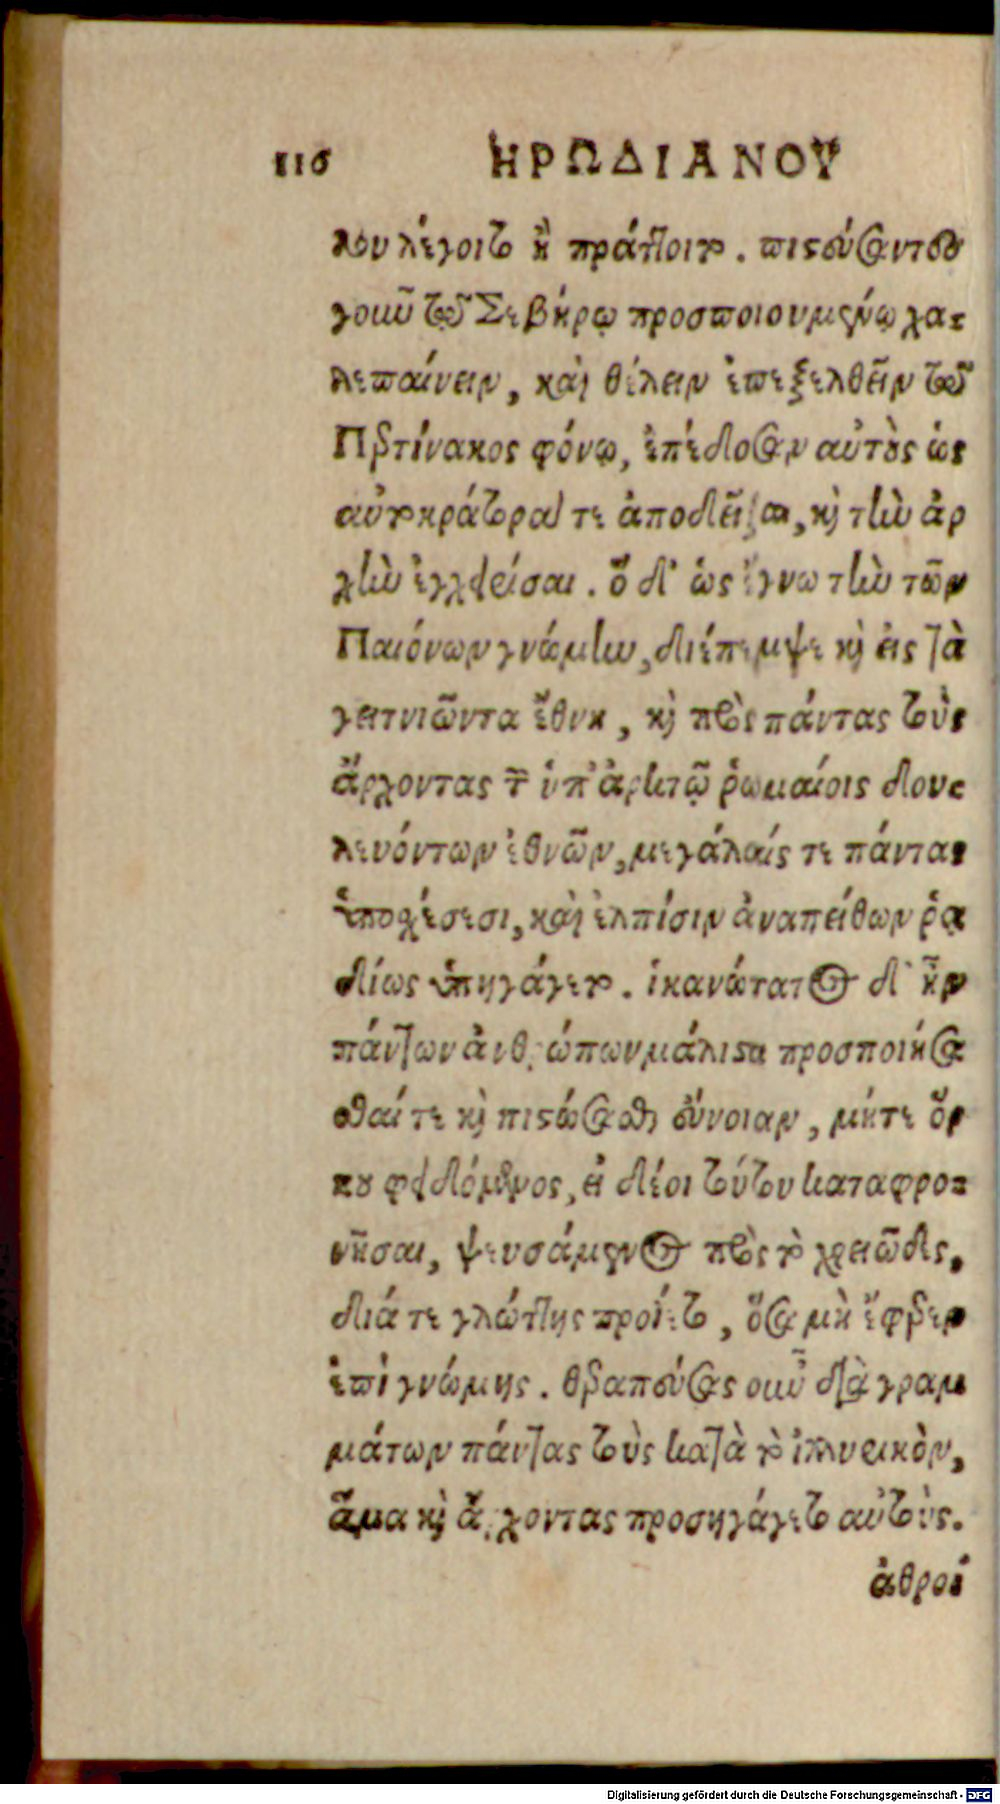 116 ΗΡΩΔΙΑΝΟΥ
λου λέγοιτο ἢ πράττοιτο. πιστεύσαντες
γοιυῦ τῷ Σεβήρῳ προσποιουμένῳ χα-
λεπαίνειν, καὶ θέλειν ἐπεξελθεῖν τῷ
Περτίνακος φόνῳ, ἐπέδοσαν αὑτοὺς ὡς
αὐτοκράτορά τε ἀποδεῖξαι, καὶ τὴν ἀρ
χὴν ἐγχειρίσαι. ὃ δ' ὡς ἔγνω τὴν τῶν
Παιόνων γνώμην, διέπεμψε καὶ εἰς τὰ
γειτνιῶντα ἔθνη, καὶ πρὸς πάντας τοὺς
ἄρχοντας τῶν ὑπ' ἀρκτῷ ῥωμαίοις δου-
λευόντων ἐθνῶν, μεγάλαις τε πάντας
ὑποσχέσεσι, καὶ ἐλπίσιν ἀναπείθων ῥᾳ
δίως ὑπηγάγετο. ἱκανώτατος δ' ἦν
πάντων ἀνθρώπων μάλιστα προσποιήσα
σθαί τε καὶ πιστώσασθαι εὔνοιαν, μήτε ὅρ
κου φειδόμενος, εἰ δέοι τούτου καταφρο-
νῆσαι, ψευσάμενος πρὸς τὸ χρειῶδες,
διά τε γλώττης προίετο, ὅσα μὴ ἔφερεν
ἐπὶ γνώμης. θεραπεύσας οὖν διὰ γραμ
μάτων πάντας τοὺς κατὰ τὸ ἰλλυρικὸν,
ἅμα καὶ ἄρχοντας προσηγάγετο αὐτούς.
ἀθροί
Digitalisierung gefördert durch die Deutsche Forschungsgemeinschaft - DFG